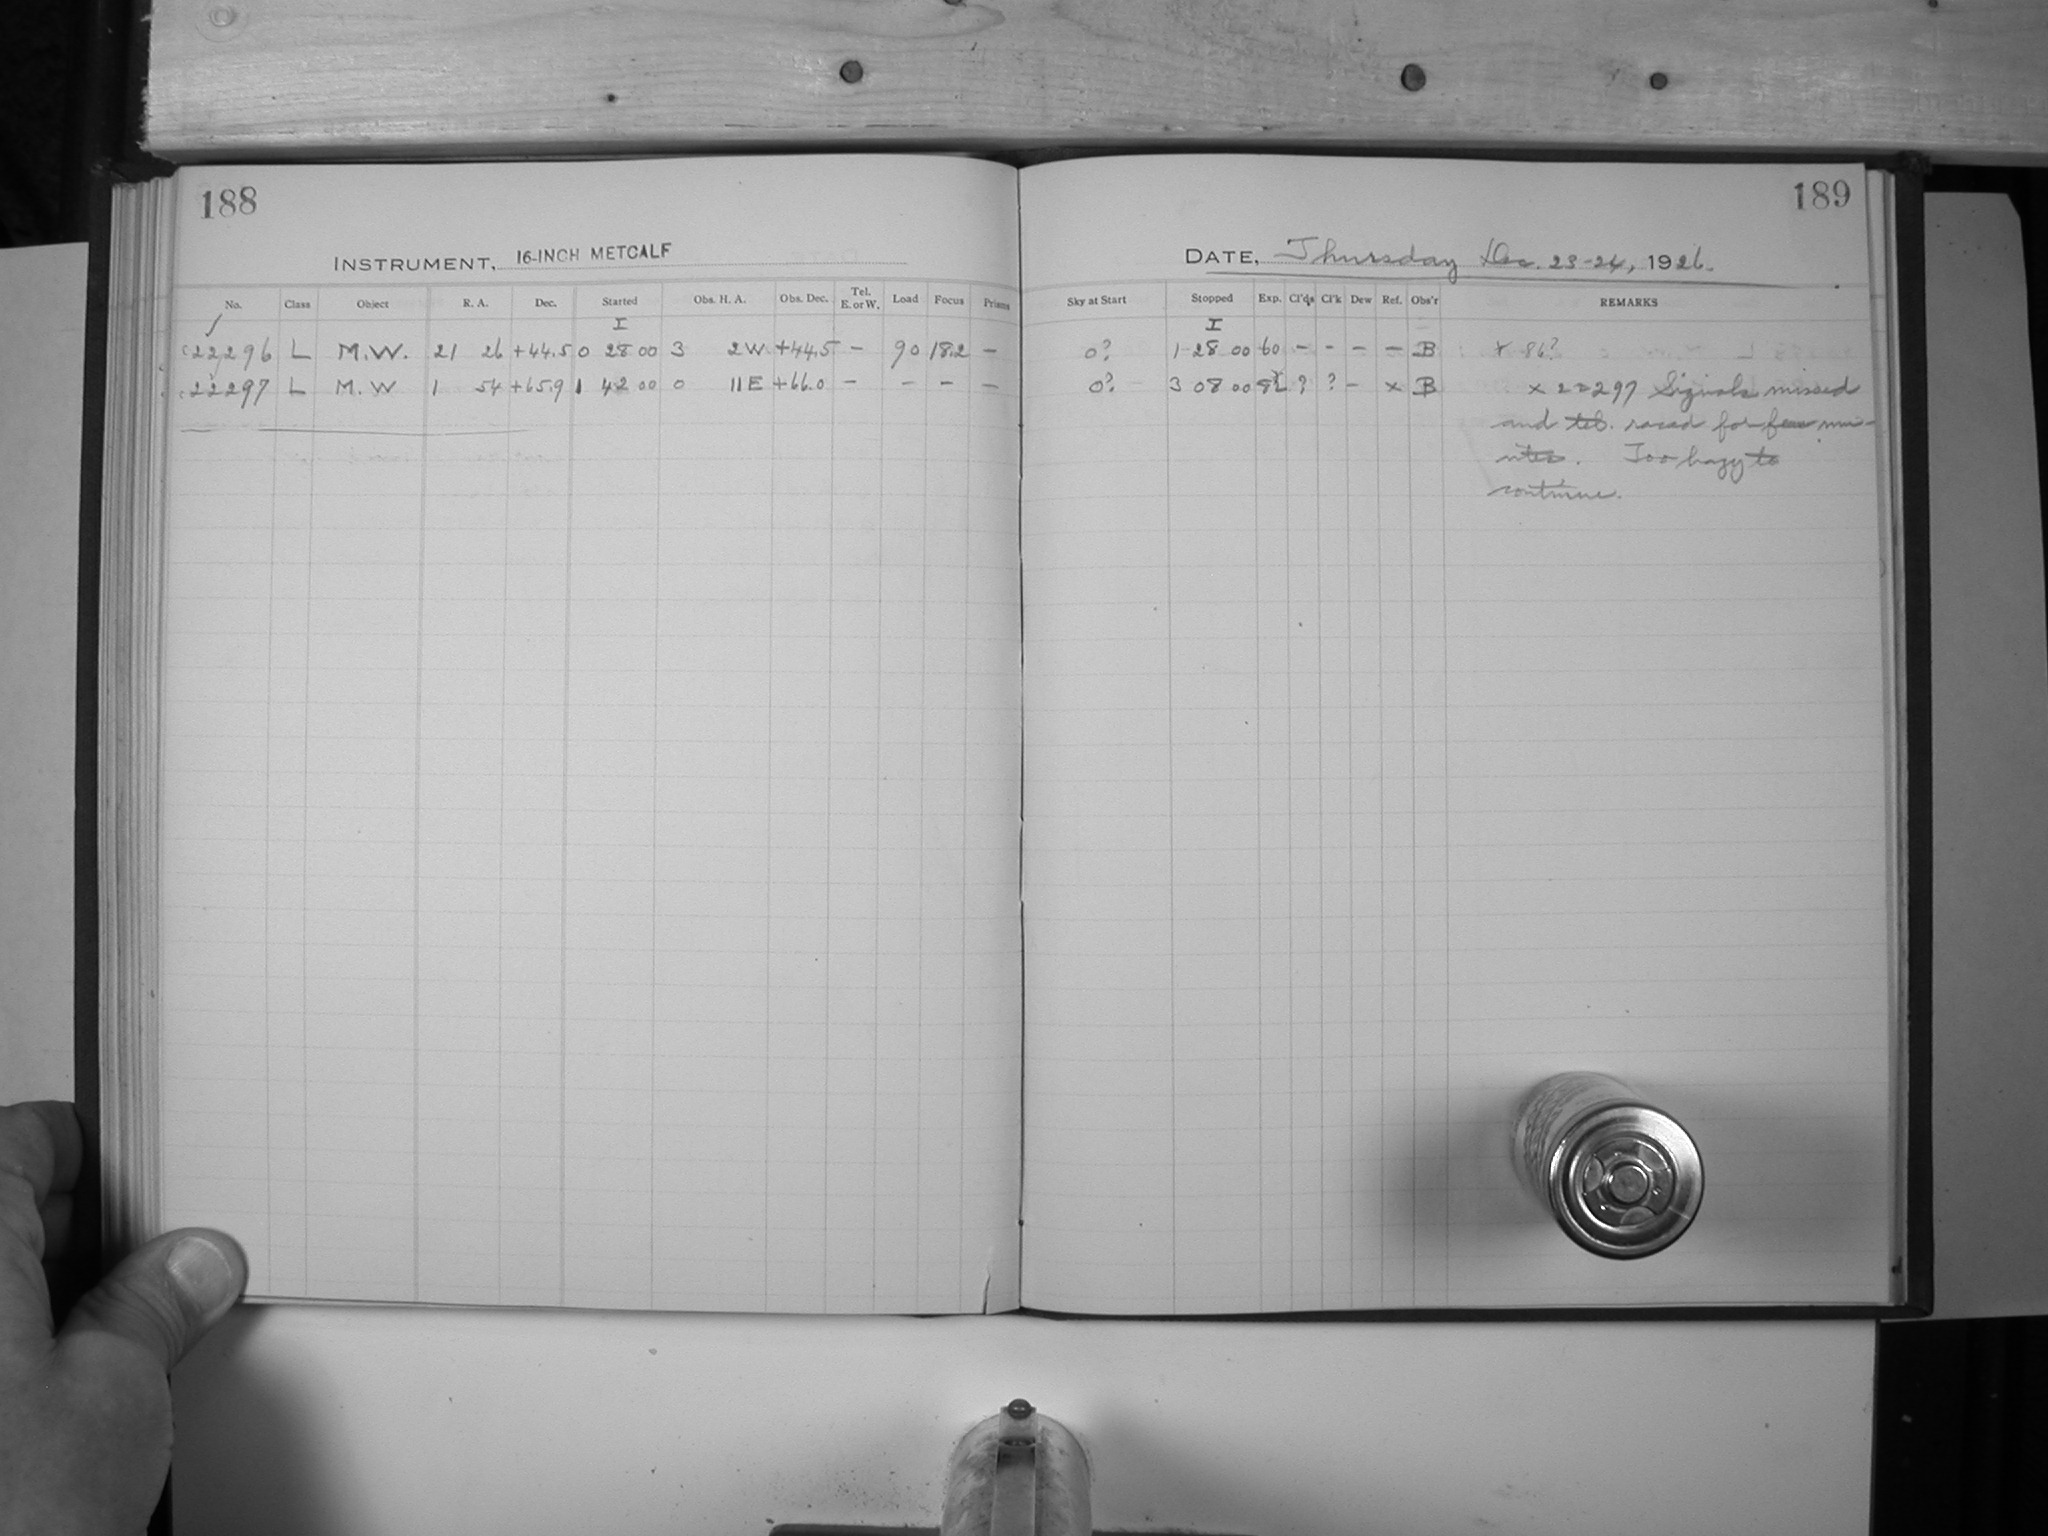 188
INSTRUMENT, 16-INCH METCALF
No. Class Object R. A. Dec. Started Obs. H. A. Obs. Dec. Tel. E. or W. Load Focus Prisms
I
22296 L M.W. 21 26 +44.5 0 28 00 3 2W +44.5 – 90 18.2 –
22297 L M.W 1 54 +65.9 1 42 00 0 11E +66.0 – – – –
189
DATE, Thursday Dec. 23-24, 1926.
Sky at Start Stopped Exp. Cl'ds Cl'k Dew Ref. Obs'r REMARKS
I
0? 1 28 00 60 – – – – B x 86?
0? 3 08 00 ? ? – x B x 22297 Signals missed
and tel. raced for few min-
utes. Too hazy to
continue.